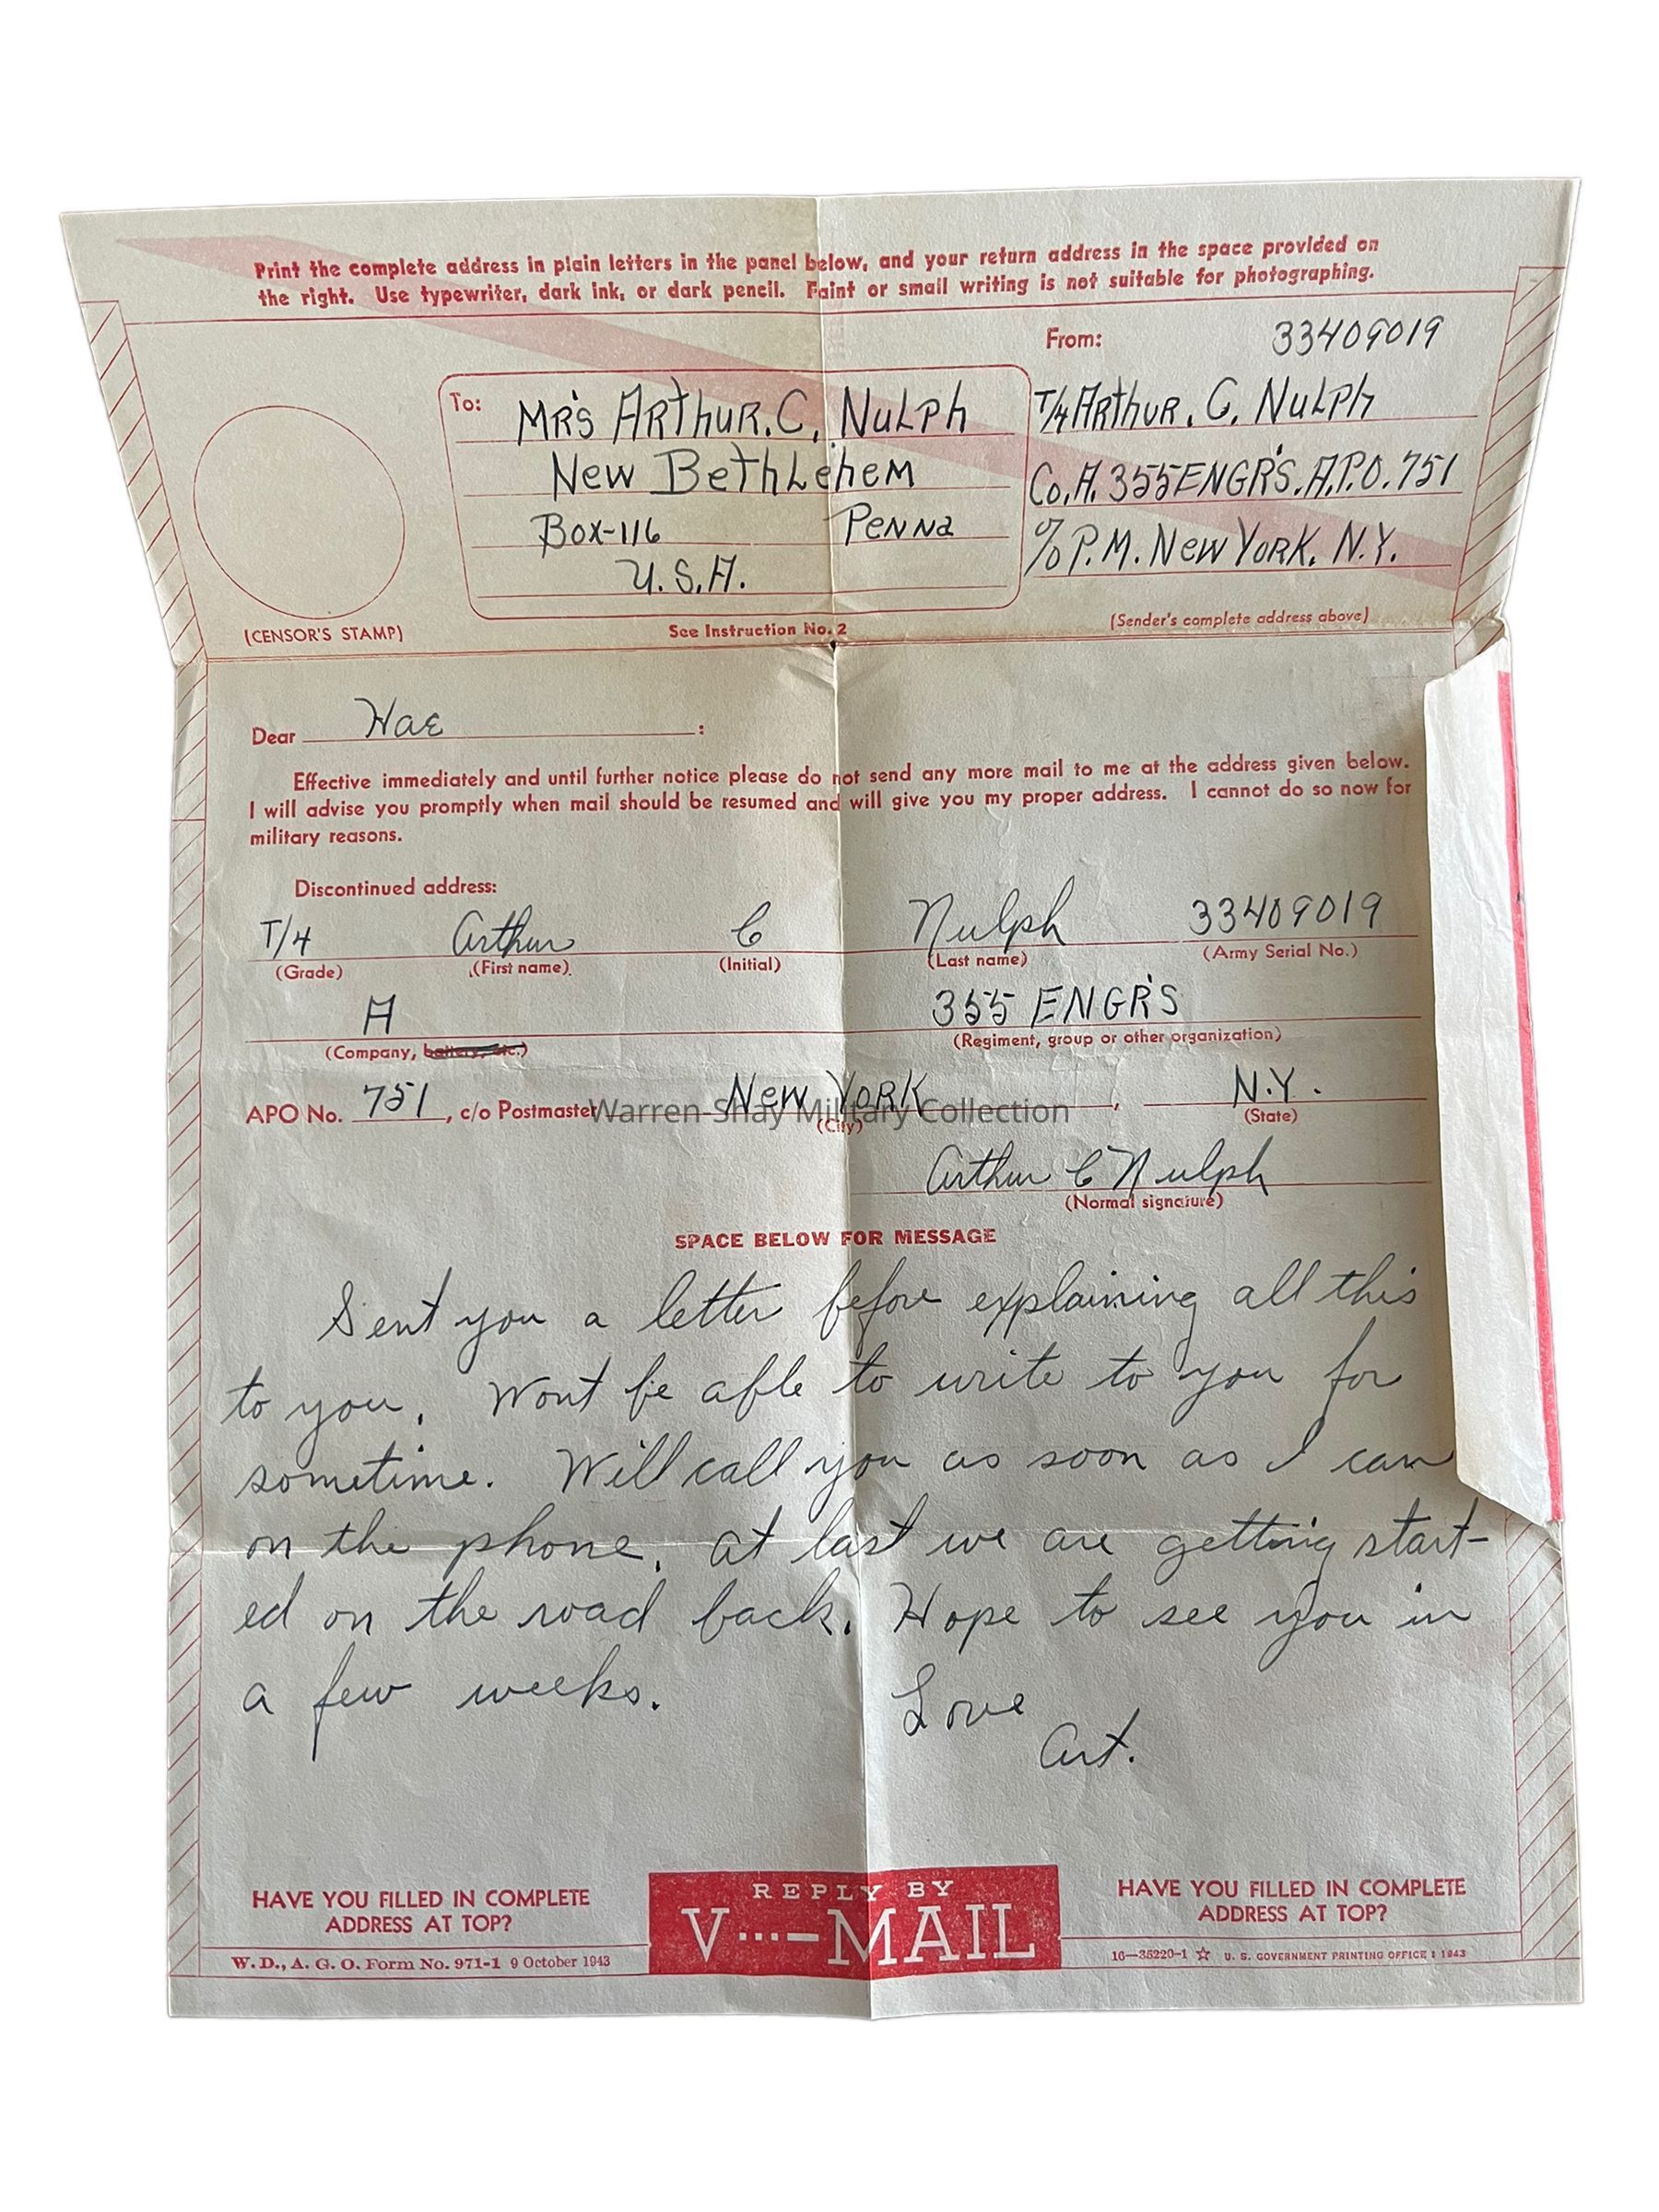 Print the complete address in plain letters in the panel below, and your return address in the space provided on
the right. Use typewriter, dark ink, or dark pencil. Faint or small writing is not suitable for photographing.
From: 33409019
To: MR'S ARthUR. C. NULPh
New BethLehem
Box-116 Penna
U.S.A.
T/4 ARthUR. C. NULPh
Co. A. 355 ENGR'S. A.P.O. 751
c/o P.M. New YORK. N.Y.
(CENSOR'S STAMP)
See Instruction No. 2
(Sender's complete address above)
Dear Hae :
Effective immediately and until further notice please do not send any more mail to me at the address given below.
I will advise you promptly when mail should be resumed and will give you my proper address. I cannot do so now for
military reasons.
Discontinued address:
T/4 Arthur C Nulph 33409019
(Grade) (First name) (Initial) (Last name) (Army Serial No.)
A 355 ENGR'S
(Company, battery, etc.) (Regiment, group or other organization)
APO No. 751, c/o Postmaster New YORK, N.Y.
(City) (State)
Warren Shay Military Collection
Arthur C Nulph
(Normal signature)
SPACE BELOW FOR MESSAGE
Sent you a letter before explaining all this
to you. Wont be able to write to you for
sometime. Will call you as soon as I can
on the phone. At last we are getting start-
ed on the road back. Hope to see you in
a few weeks.
Love
Art.
HAVE YOU FILLED IN COMPLETE
ADDRESS AT TOP?
REPLY BY
V···—MAIL
HAVE YOU FILLED IN COMPLETE
ADDRESS AT TOP?
W. D., A. G. O. Form No. 971-1 9 October 1943
16—35220-1 ☆ U. S. GOVERNMENT PRINTING OFFICE : 1943